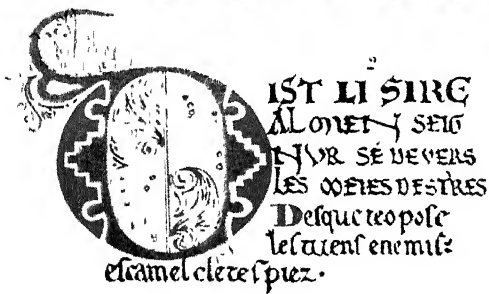 DIST LI SIRE
AL MEIN SEIG
NUR SÉ DEVERS
LES MEIES DESTRES
Desque ieo pose
les tuens enemis:
escamel de tes piez.